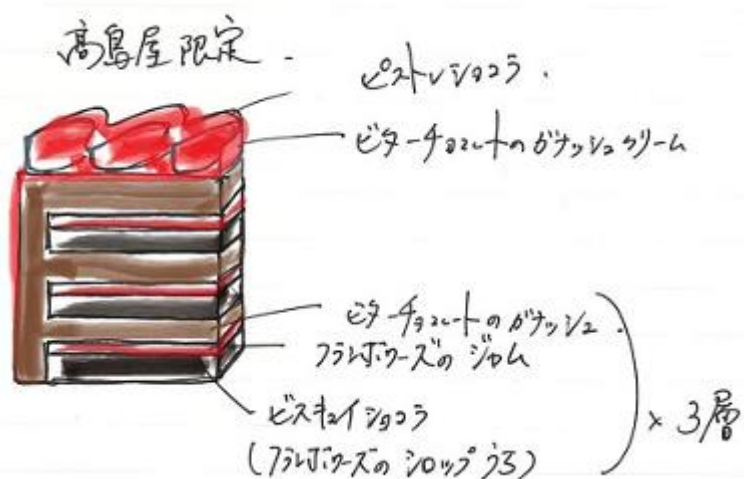 高島屋限定.
ピストレショコラ.
ビターチョコレートのガナッシュクリーム
ビターチョコレートのガナッシュ.
フランボワーズのジャム
ビスキュイショコラ
(フランボワーズのシロップうち)
×3層